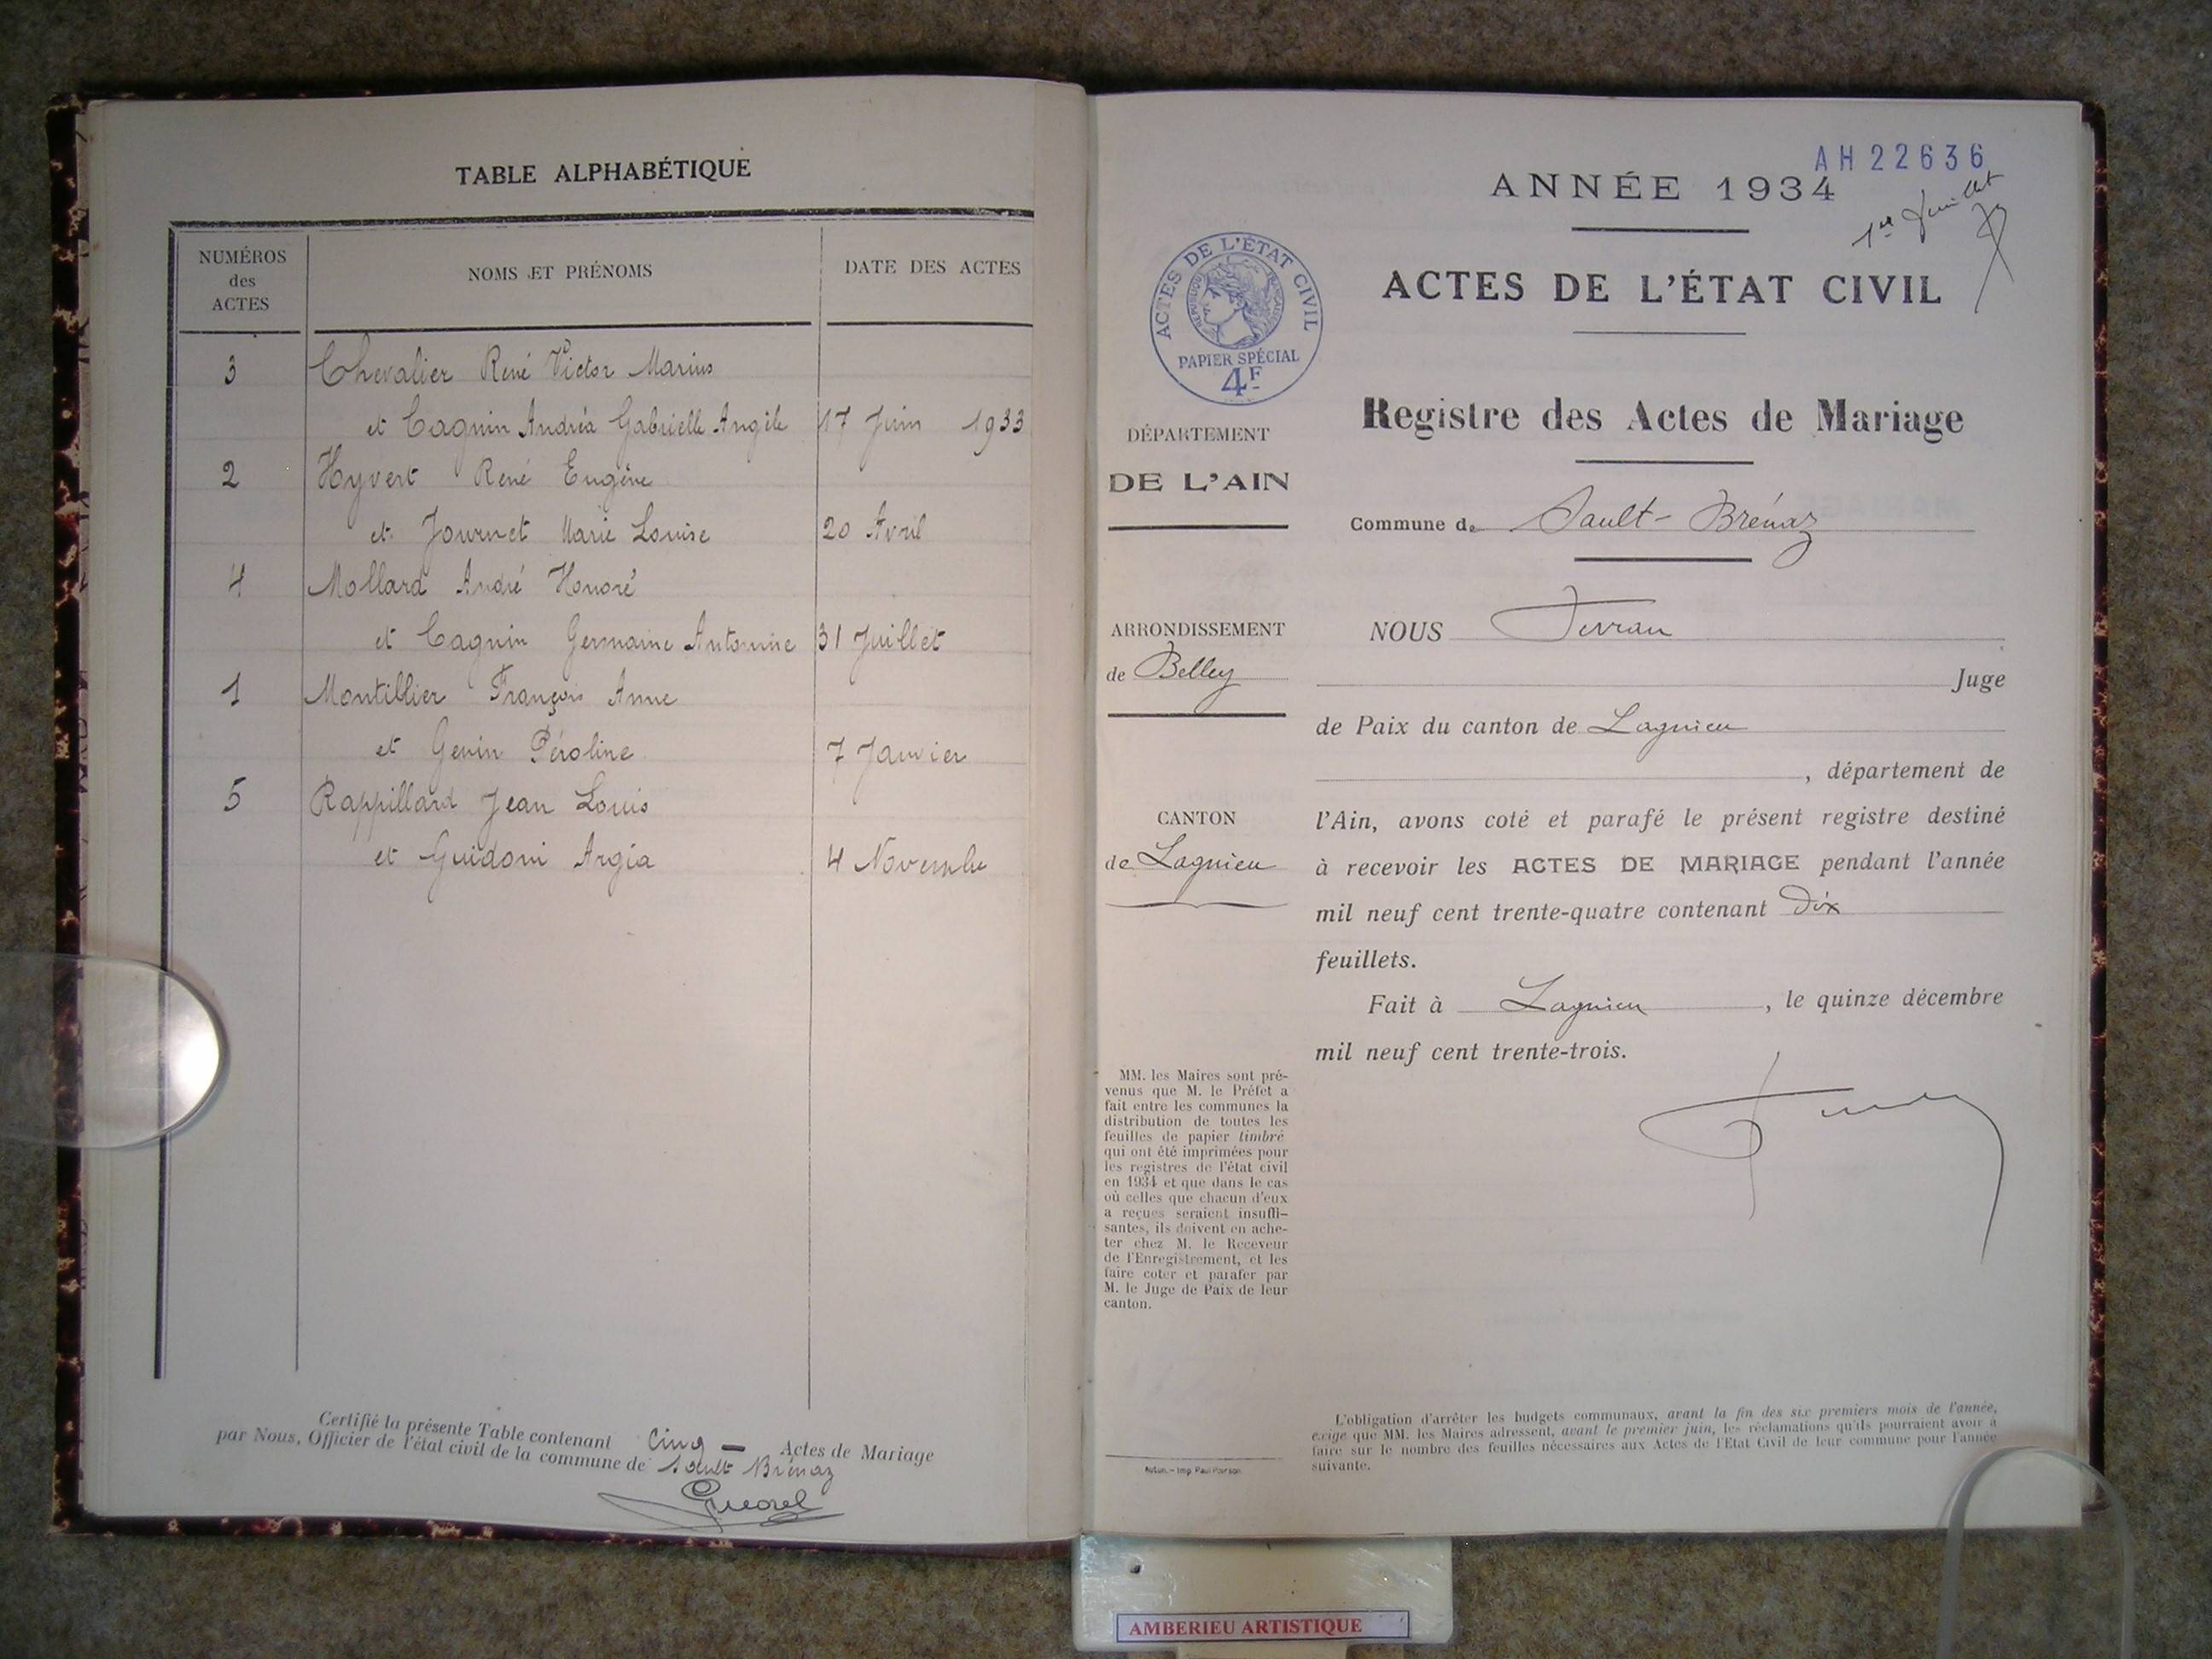 TABLE ALPHABÉTIQUE
NUMÉROS
des
ACTES
NOMS ET PRÉNOMS
DATE DES ACTES
3 Chevalier René Victor Marius
et Cagnin Andréa Gabrielle Angèle 17 Juin 1933
2 Hyvert René Eugène
et Journet Marie Louise 20 Avril
4 Mollard André Honoré
et Cagnin Germaine Antonine 31 Juillet
1 Montillier François Anne
et Genin Péroline 7 Janvier
5 Rappillard Jean Louis
et Guidoni Argia 4 Novembre
Certifié la présente Table contenant Cinq — Actes de Mariage
par Nous, Officier de l'état civil de la commune de Sault Brénaz
AH22636
ANNÉE 1934
1er Feuillet
ACTES DE L'ÉTAT CIVIL
ACTES DE L'ÉTAT CIVIL
RÉPUBLIQUE FRANÇAISE
PAPIER SPÉCIAL
4F
DÉPARTEMENT
DE L'AIN
ARRONDISSEMENT
de Belley
CANTON
de Lagnieu
MM. les Maires sont pré-
venus que M. le Préfet a
fait entre les communes la
distribution de toutes les
feuilles de papier timbré
qui ont été imprimées pour
les registres de l'état civil
en 1934 et que dans le cas
où celles que chacun d'eux
a reçues seraient insuffi-
santes, ils doivent en ache-
ter chez M. le Receveur
de l'Enregistrement, et les
faire coter et parafer par
M. le Juge de Paix de leur
canton.
Autun. - Imp Paul Poirson
Registre des Actes de Mariage
Commune de Sault-Brénaz
NOUS
Juge
de Paix du canton de Lagnieu
, département de
l'Ain, avons coté et parafé le présent registre destiné
à recevoir les ACTES DE MARIAGE pendant l'année
mil neuf cent trente-quatre contenant Dix
feuillets.
Fait à Lagnieu, le quinze décembre
mil neuf cent trente-trois.
L'obligation d'arrêter les budgets communaux, avant la fin des six premiers mois de l'année,
exige que MM. les Maires adressent, avant le premier juin, les réclamations qu'ils pourraient avoir à
faire sur le nombre des feuilles nécessaires aux Actes de l'Etat Civil de leur commune pour l'année
suivante.
AMBERIEU ARTISTIQUE